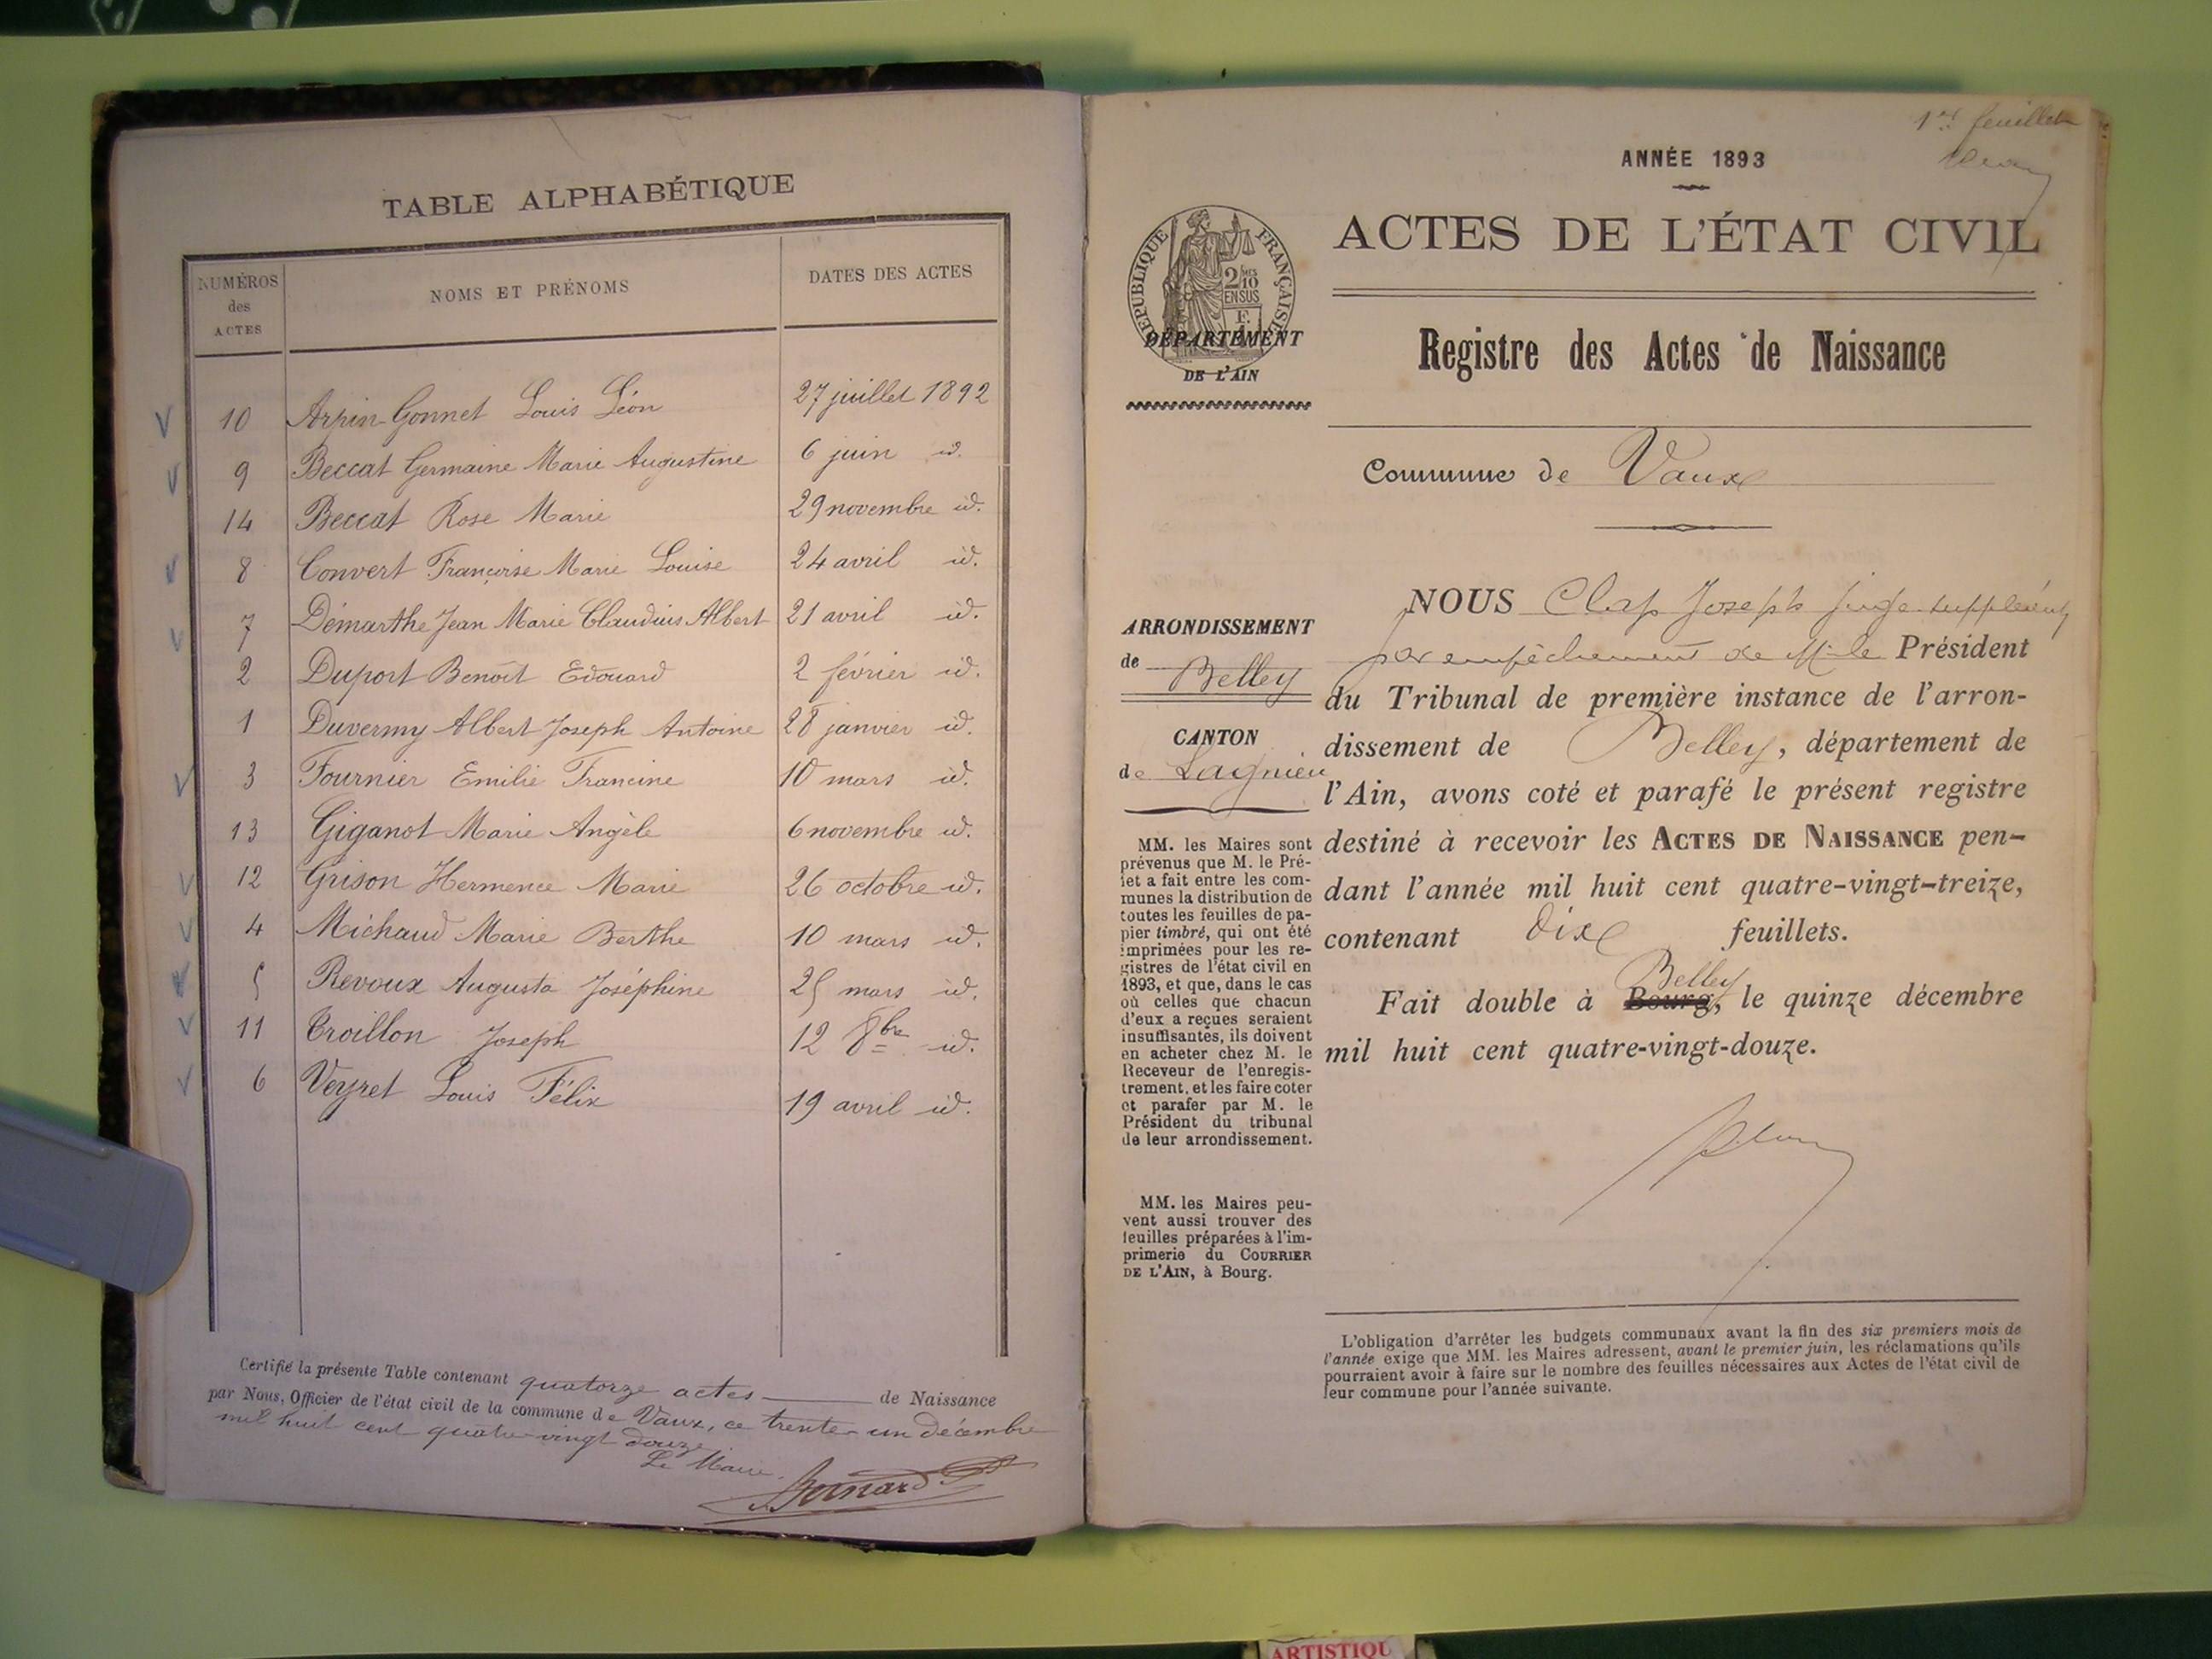 TABLE ALPHABÉTIQUE
NUMÉROS des ACTES NOMS ET PRÉNOMS DATES DES ACTES
10 Arpin-Gonnet Louis Léon 27 juillet 1892
9 Beccat Germaine Marie Augustine 6 juin id.
14 Beccat Rose Marie 29 novembre id.
8 Convert Françoise Marie Louise 24 avril id.
7 Démarthe Jean Marie Claudius Albert 21 avril id.
2 Duport Benoît Edouard 2 février id.
1 Duvermy Albert Joseph Antoine 28 janvier id.
3 Fournier Emilie Francine 10 mars id.
13 Giganot Marie Angèle 6 novembre id.
12 Grison Hermence Marie 26 octobre id.
4 Michaud Marie Berthe 10 mars id.
5 Revoux Augusta Joséphine 25 mars id.
11 Troillon Joseph 12 8bre id.
6 Veyret Louis Félix 19 avril id.
Certifié la présente Table contenant quatorze actes de Naissance
par Nous, Officier de l'état civil de la commune de Vaux, ce trente-un décembre
mil huit cent quatre-vingt douze.
Le Maire,
Bernard
1er feuillet
ANNÉE 1893
ACTES DE L'ÉTAT CIVIL
RÉPUBLIQUE FRANÇAISE
2/10 EN SUS
DÉPARTEMENT
DE L'AIN
Registre des Actes de Naissance
Commune de Vaux
ARRONDISSEMENT
de Belley
CANTON
de Lagnieu
MM. les Maires sont
prévenus que M. le Pré-
fet a fait entre les com-
munes la distribution de
toutes les feuilles de pa-
pier timbré, qui ont été
imprimées pour les re-
gistres de l'état civil en
1893, et que, dans le cas
où celles que chacun
d'eux a reçues seraient
insuffisantes, ils doivent
en acheter chez M. le
Receveur de l'enregis-
trement, et les faire coter
et parafer par M. le
Président du tribunal
de leur arrondissement.
MM. les Maires peu-
vent aussi trouver des
feuilles préparées à l'im-
primerie du COURRIER
DE L'AIN, à Bourg.
NOUS Clap Joseph juge suppléant
par empêchement de M. le Président
du Tribunal de première instance de l'arron-
dissement de Belley, département de
l'Ain, avons coté et parafé le présent registre
destiné à recevoir les ACTES DE NAISSANCE pen-
dant l'année mil huit cent quatre-vingt-treize,
contenant dix feuillets.
Belley
Fait double à Bourg, le quinze décembre
mil huit cent quatre-vingt-douze.
L'obligation d'arrêter les budgets communaux avant la fin des six premiers mois de
l'année exige que MM. les Maires adressent, avant le premier juin, les réclamations qu'ils
pourraient avoir à faire sur le nombre des feuilles nécessaires aux Actes de l'état civil de
leur commune pour l'année suivante.
ARTISTIQU